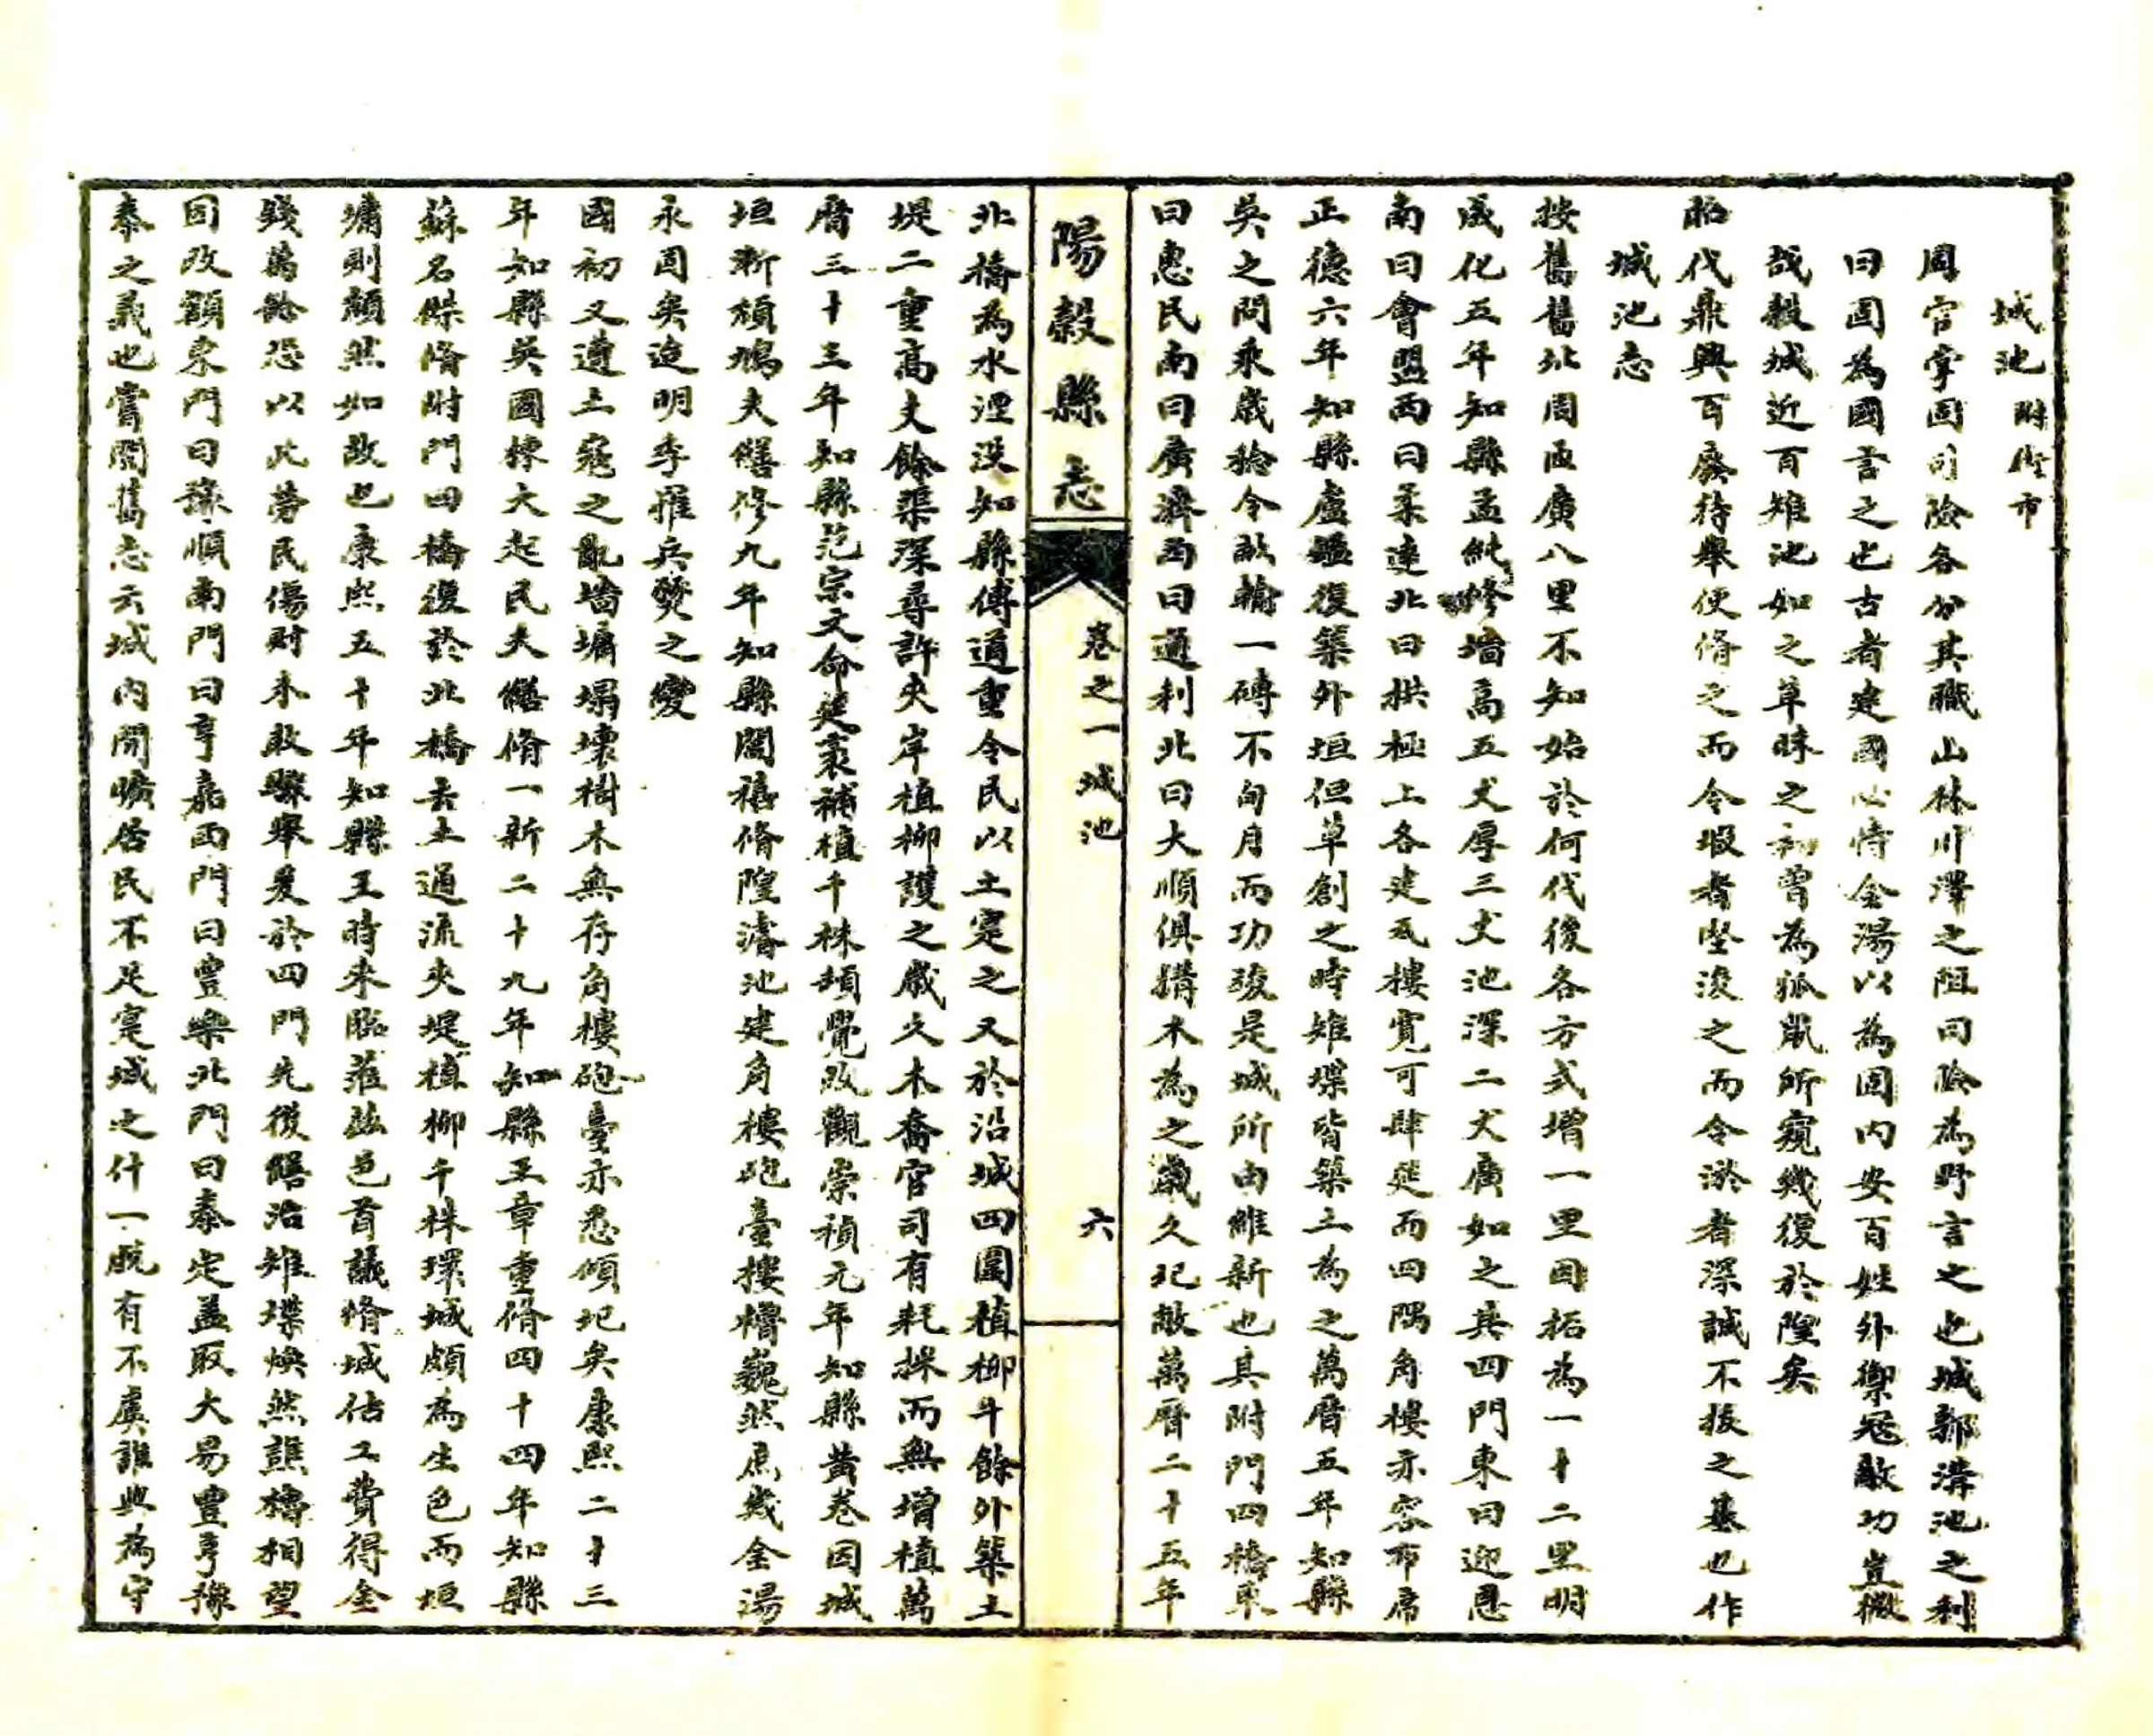 城池 附街市
周官掌固司險各分其職山林川澤之阻司險為野言之也城郭溝池之利
曰固為國言之也古者建國必恃金湯以為固內安百姓外禦寇敵功豈微
哉穀城近百雉池如之草昧之初曾為狐鼠所窺幾復於隍矣
昭代鼎興百廢待舉便脩之而令瑕者堅浚之而令淤者深誠不拔之基也作
城池志
按舊舊址周匝廣八里不知始於何代後各方式增一里因拓為一十二里明
成化五年知縣孟純修墻高五丈厚三丈池深二丈廣如之其四門東曰迎恩
南曰會盟西曰柔遠北曰拱極上各建瓦樓寬可肆筵而四隅角樓亦容布席
正德六年知縣盧鑑復築外垣但草創之時雉堞皆築土為之萬曆五年知縣
吳之問乘歲稔令訟輸一磚不旬月而功竣是城所由維新也其附門四橋東
曰惠民南曰廣濟西曰通利北曰大順俱搆木為之歲久圮敝萬曆二十五年
陽穀縣志 卷之一城池 六
北橋為水湮沒知縣傅道重令民以土寔之又於沿城四圍植柳千餘外築土
堤二重高丈餘渠深尋許夾岸植柳護之歲久木喬官司有耗採而無增植萬
曆三十三年知縣范宗文命延袤補植千株頓覺改觀崇禎元年知縣黃卷因城
垣漸頹鳩夫繕修九年知縣閻禧脩隍濬池建角樓砲臺樓櫓巍然庶幾金湯
永固矣迨明季罹兵燹之變
國初又遭土寇之亂墻墉塌壞樹木無存角樓砲臺亦悉傾圮矣康熙二十三
年知縣吳國棟大起民夫繕脩一新二十九年知縣王章重脩四十四年知縣
蘇名傑脩附門四橋復於北橋去土通流夾堤植柳千株環城頗為生色而垣
墉則頹然如故也康熙五十年知縣王時來臨蒞茲邑首議脩城估工費得金
錢萬餘恐以此勞民傷財未敢驟舉爰於四門先後繕治雉堞煥然譙樓相望
因改額東門曰豫順南門曰亨嘉西門曰豐樂北門曰泰定蓋取大易豐亨豫
泰之義也嘗閱舊志云城內閒曠居民不足寔城之什一脫有不虞誰與為守